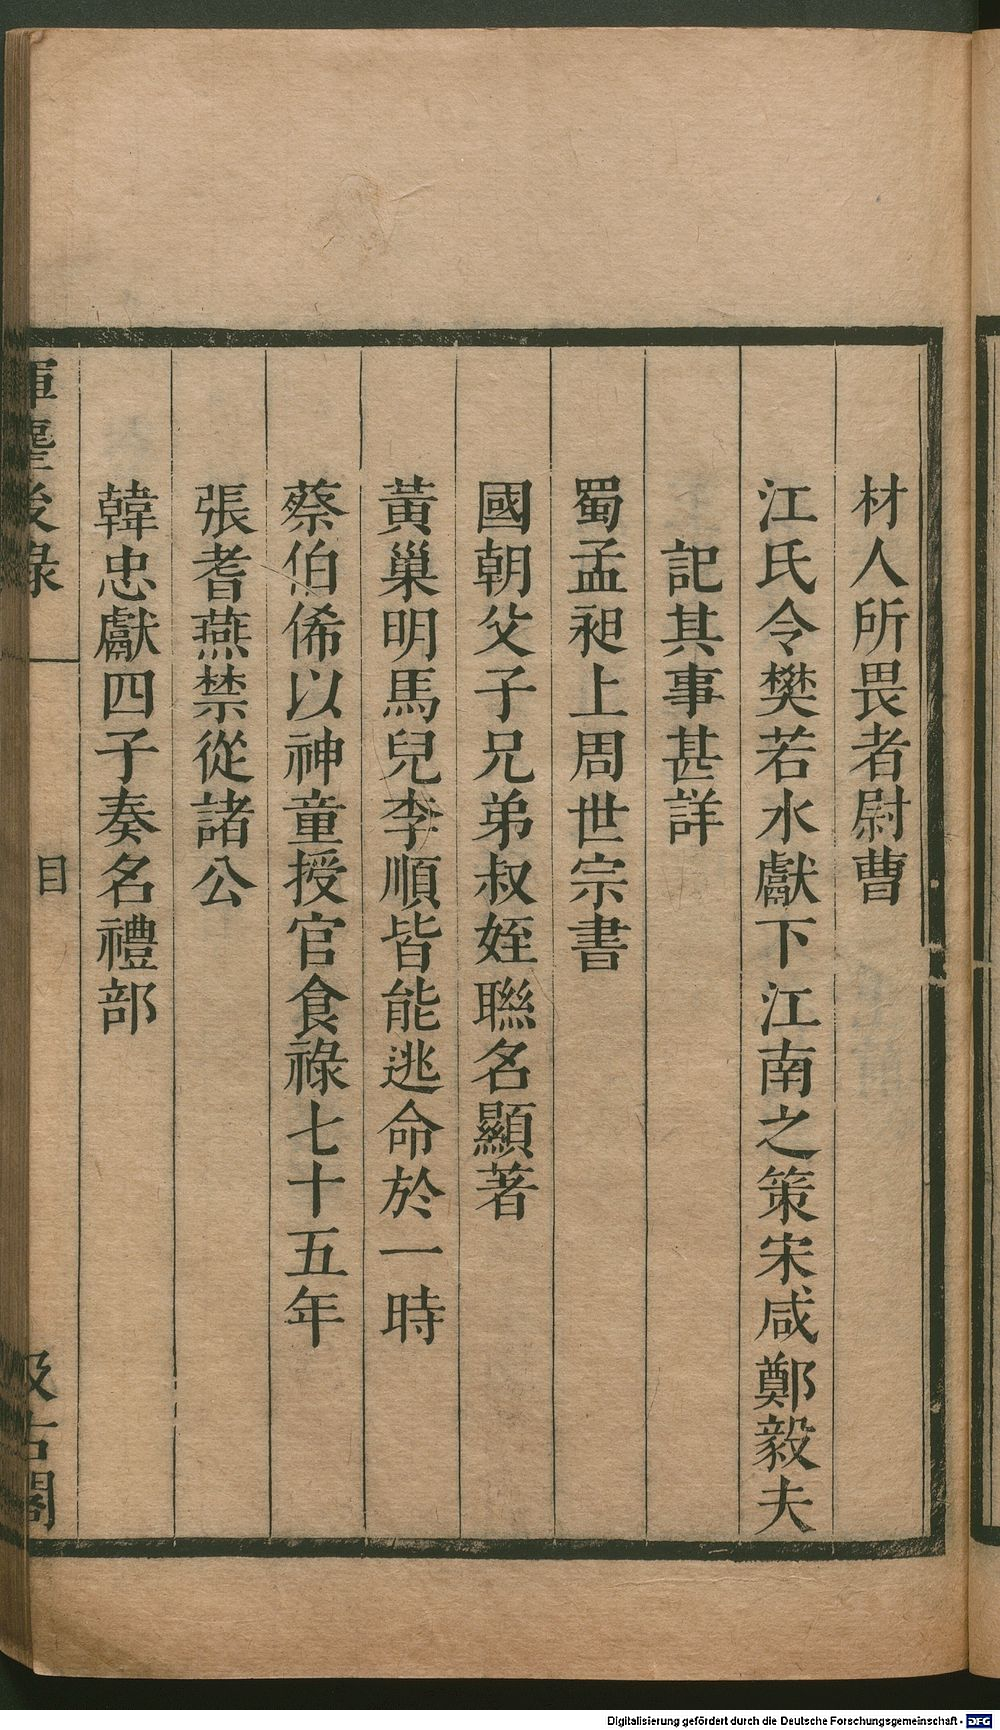 材人所畏者尉曹
江氏令樊若水獻下江南之策宋咸鄭毅夫
記其事甚詳
蜀孟昶上周世宗書
國朝父子兄弟叔姪聯名顯著
黃巢明馬兒李順皆能逃命於一時
蔡伯俙以神童授官食祿七十五年
張耆燕禁從諸公
韓忠獻四子奏名禮部
揮麈後錄
目
汲古閣
Digitalisierung gefördert durch die Deutsche Forschungsgemeinschaft - DFG